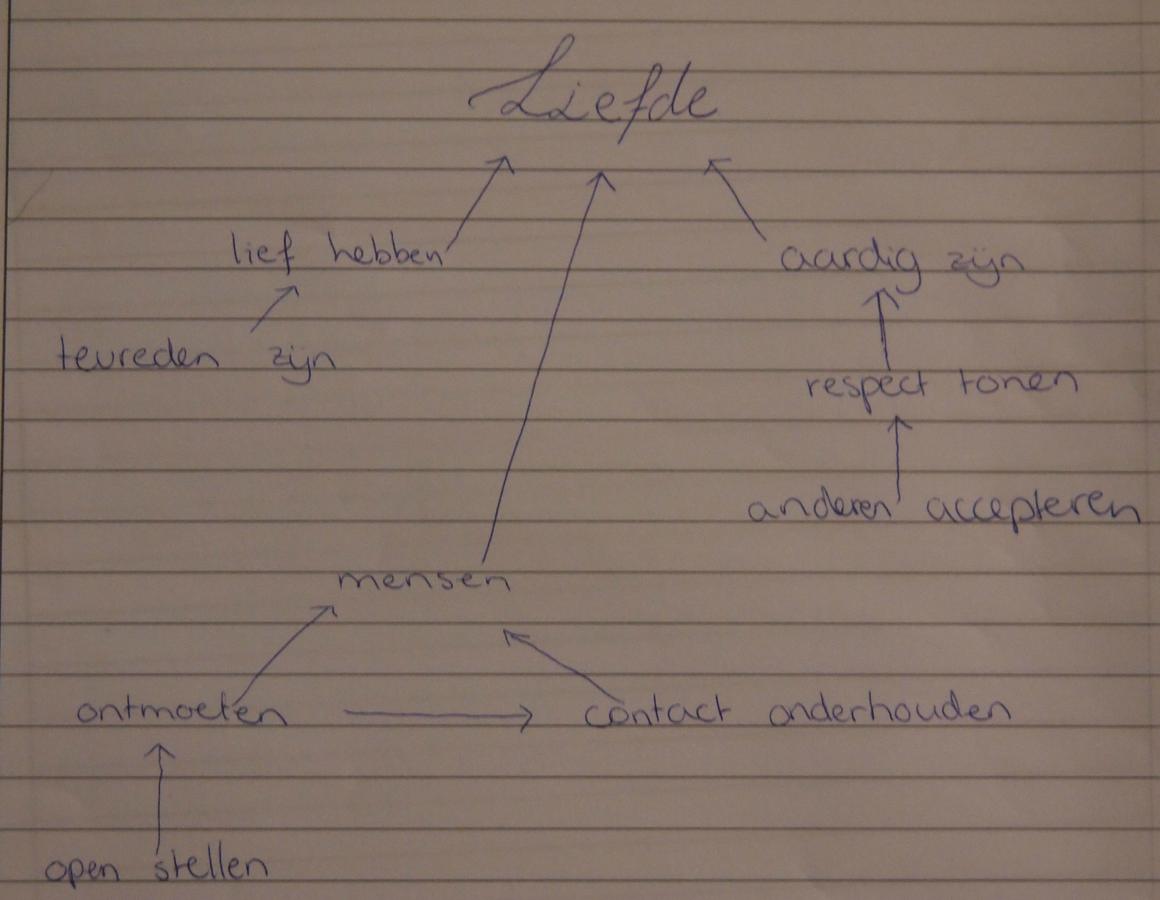 Liefde
lief hebben
aardig zijn
tevreden zijn
respect tonen
anderen accepteren
mensen
ontmoeten
contact onderhouden
open stellen